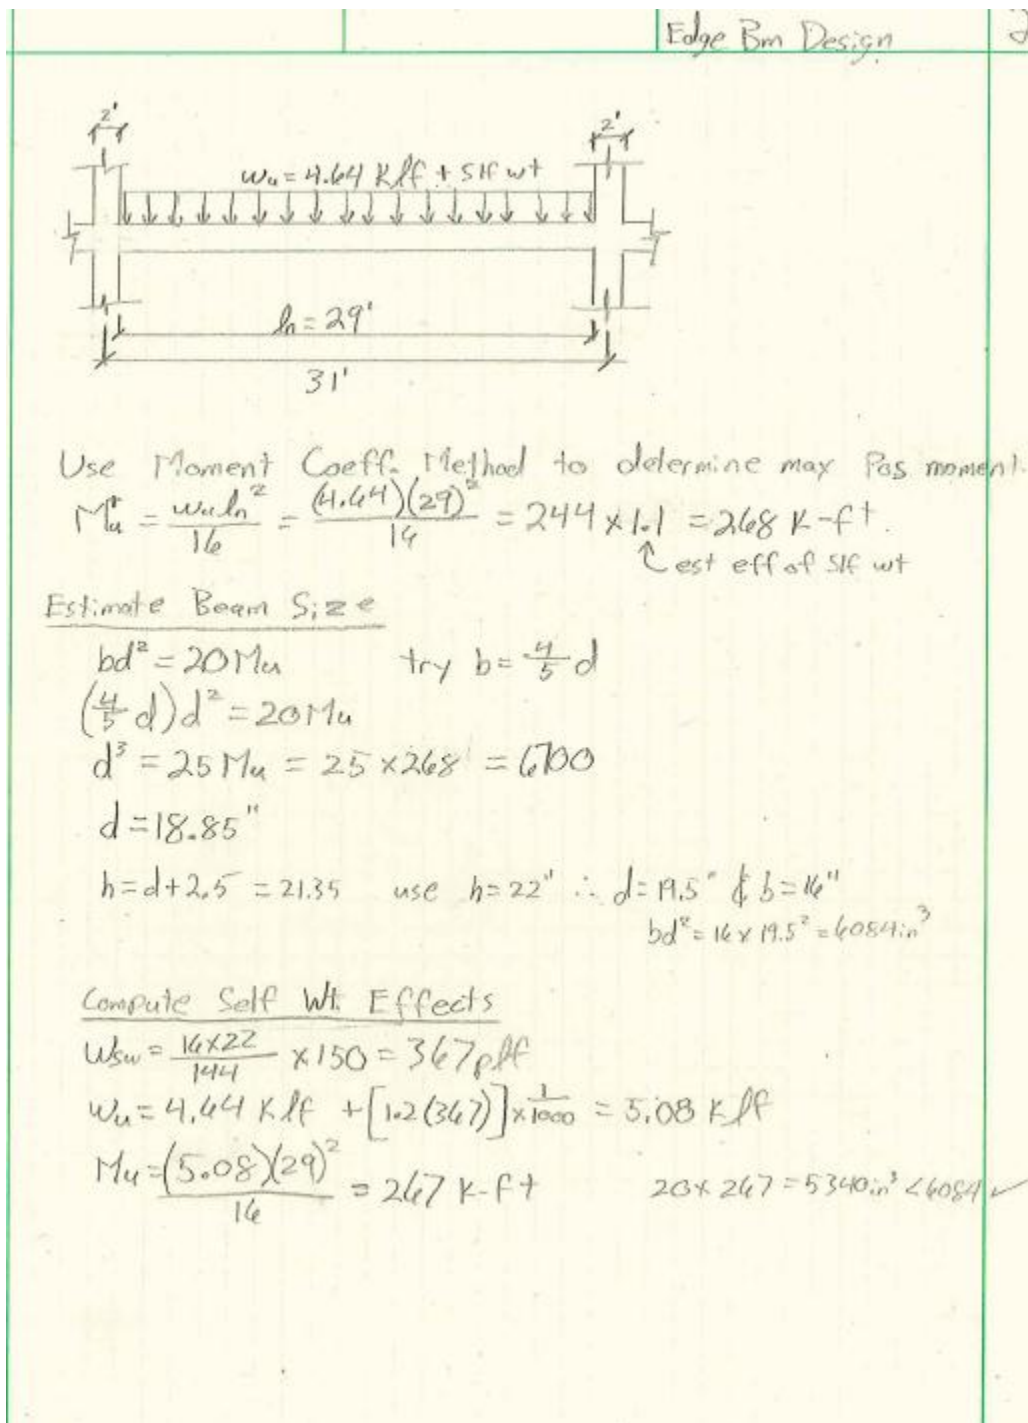 Edge Bm Design
2' 2'
wu = 4.64 Klf + Slf wt
ln = 29'
31'
Use Moment Coeff. Method to determine max Pos moment.
Mu = wu ln² / 16 = (4.64)(29)² / 16 = 244 x 1.1 = 268 K-ft.
↑ est eff of Slf wt
Estimate Beam Size
bd² = 20Mu try b = 4/5 d
(4/5 d)d² = 20Mu
d³ = 25Mu = 25 x 268 = 6700
d = 18.85"
h = d + 2.5 = 21.35 use h = 22" ∴ d = 19.5" & b = 16"
bd² = 16 x 19.5² = 6084 in³
Compute Self Wt. Effects
Wsw = 16x22 / 144 x 150 = 367 plf
wu = 4.64 Klf + [1.2(367)] x 1/1000 = 5.08 Klf
Mu = (5.08)(29)² / 16 = 267 K-ft 20 x 267 = 5340 in³ < 6084 ✓